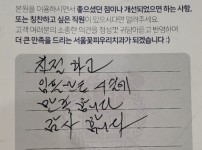 본원을 이용하시면서 좋으셨던 점이나 개선되었으면 하는 사항,
또는 칭찬하고 싶은 직원이 있으시다면 알려주세요.
고객 여러분의 소중한 의견을 정성껏 귀담아듣고 반영하여
더 큰 만족을 드리는 서울꽃피우리치과가 되겠습니다 :)
친절하고
만족 합니다
감사 합니다